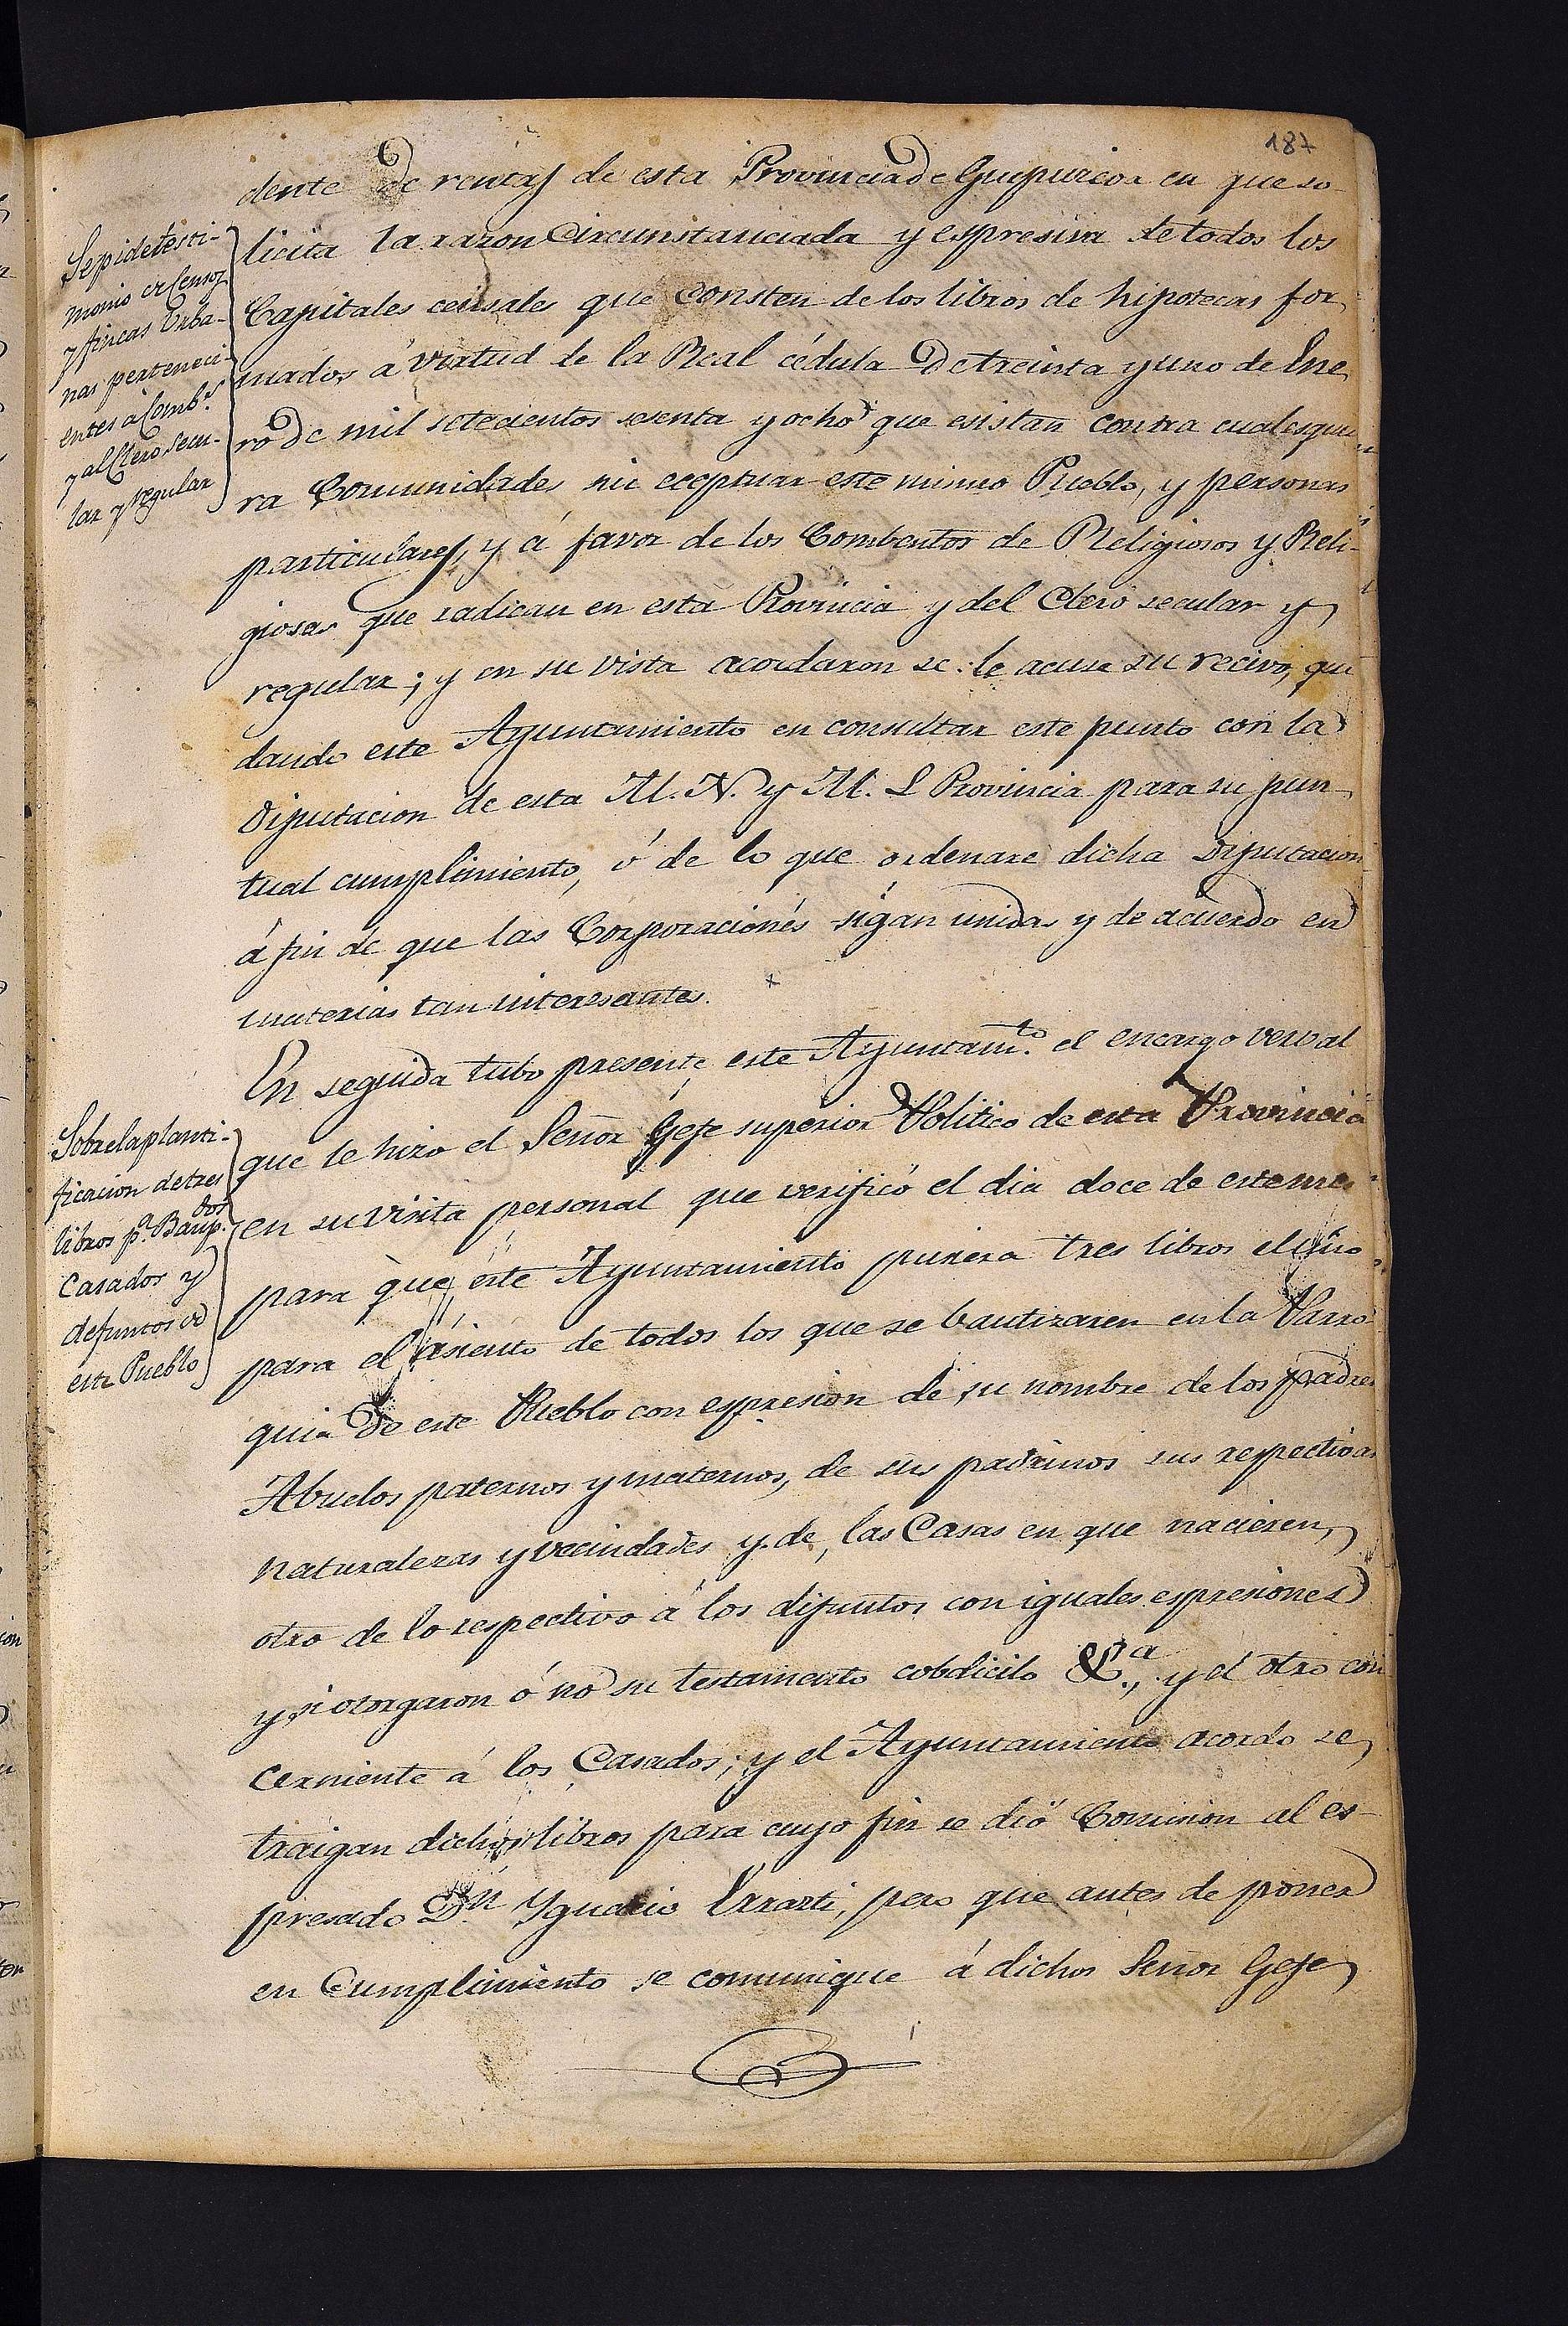 187
dente de rentas de esta Provincia de Guipuzcoa en que so
licita la razon Circunstanciada y espresiva de todos los
Capitales censales que Consten de los libros de hipotecas for
mados á virtud de la Real cédula de treinta y uno de Ene
ro de mil setecientos sesenta y ocho que esistan contra cualesquie
ra Comunidades sin eceptuar este mismo Pueblo, y personas
particulares, y á favor de los Combentos de Religiosos y Reli-
giosas que radican en esta Provincia y del Clero secular y
regular; y en su vista acordaron se le acuse su recivo, que
dando este Ayuntamiento en consultar este punto con la
Diputacion de esta M. N. y M. L Provincia para su pun
tual cumplimiento, ó de lo que ordenare dicha Diputacion
á fin de que las Corporaciones sigan unidas y de acuerdo en
materias tan interesantes.
Se pide testi-
monio de Censos
y fincas Urba-
nas perteneci-
entes á Comb.s
y al Clero secu-
lar y regular
En seguida tubo presente este Ayuntam.to el encargo verval
que le hizo el Señor Gefe superior Politico de esta Provincia
en su visita personal que verificó el dia doce de este mes
para que este Ayuntamiento pusiera tres libros el uno
para el asiento de todos los que se bautizaren en la Parro
quia de este Pueblo con espresion de su nombre de los padres
Abuelos paternos y maternos, de sus padrinos sus respectivas
naturalezas y vecindades y de las Casas en que nacieren,
otro de lo respectivo á los difuntos con iguales espresiones
y si otorgaron ó no su testamento cobdicilo &.a, y el otro con
cerniente á los Casados; y el Ayuntamiento acordo se
traigan dichos libros para cuyo fin se dió Comision al es-
presado Dn Ygnacio Errazti, pero que antes de poner
en Cumplimiento se comunique á dichos Señor Gefe
Sobre la planti-
ficacion de tres
libros p.a Baup.dos
Casados y
defuntos de
este Pueblo